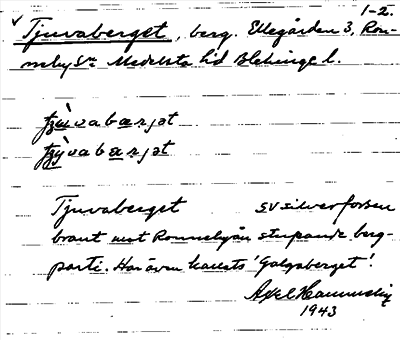 1-2.
Tjuvaberget, berg. Ellegården 3, Ron-
neby Sn Medelsta hd Blekinge l.
Tjuvaberget SV Silverforsen
brant mot Ronnebyån stupande berg-
parti. Har även kallats 'Galgaberget'.
Axel
1943